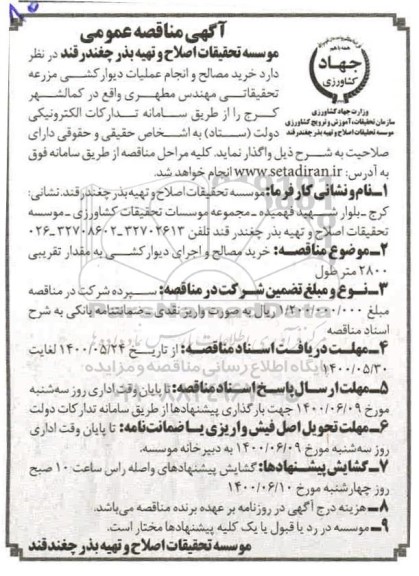 آگهی مناقصه عمومی
جهاد
کشاورزی
وزارت جهاد کشاورزی
سازمان تحقیقات، آموزش و ترویج کشاورزی
موسسه تحقیقات اصلاح و تهیه بذر چغندرقند
موسسه تحقیقات اصلاح و تهیه بذر چغندر قند در نظر
دارد خرید مصالح و انجام عملیات دیوارکشی مزرعه
تحقیقاتی مهندس مطهری واقع در کمالشهر
کرج را از طریق سامانه تدارکات الکترونیکی
دولت (ستاد) به اشخاص حقیقی و حقوقی دارای
صلاحیت به شرح ذیل واگذار نماید. کلیه مراحل مناقصه از طریق سامانه فوق
به آدرس: www.setadiran.ir انجام خواهد شد.
۱ـ نام و نشانی کارفرما: موسسه تحقیقات اصلاح و تهیه بذر چغندرقند. نشانی:
کرج ـ بلوار شهید فهمیده ـ مجموعه موسسات تحقیقات کشاورزی ـ موسسه
تحقیقات اصلاح و تهیه بذر چغندر قند تلفن ۳۲۷۰۲۶۱۳ـ۳۲۷۰۸۶۰۲ـ۰۲۶
۲ـ موضوع مناقصه: خرید مصالح و اجرای دیوارکشی به مقدار تقریبی
۲۸۰۰ متر طول
۳ـ نوع و مبلغ تضمین شرکت در مناقصه: سپرده شرکت در مناقصه
مبلغ ۱/۲۰۰/۰۰۰/۰۰۰ ریال به صورت واریز نقدی ـ ضمانتنامه بانکی به شرح
اسناد مناقصه
۴ـ مهلت دریافت اسناد مناقصه: از تاریخ ۱۴۰۰/۰۵/۲۴ لغایت
۱۴۰۰/۰۵/۳۰
۵ـ مهلت ارسال پاسخ اسناد مناقصه: تا پایان وقت اداری روز سه‌شنبه
مورخ ۱۴۰۰/۰۶/۰۹ جهت بارگذاری پیشنهادها از طریق سامانه تدارکات دولت
۶ـ مهلت تحویل اصل فیش واریزی یا ضمانت نامه: تا پایان وقت اداری
روز سه‌شنبه مورخ ۱۴۰۰/۰۶/۰۹ به دبیرخانه موسسه.
۷ـ گشایش پیشنهادها: گشایش پیشنهادهای واصله راس ساعت ۱۰ صبح
روز چهارشنبه مورخ ۱۴۰۰/۰۶/۱۰
۸ـ هزینه درج آگهی در روزنامه بر عهده برنده مناقصه می‌باشد.
۹ـ موسسه در رد یا قبول یا یک کلیه پیشنهادها مختار است.
موسسه تحقیقات اصلاح و تهیه بذر چغندرقند